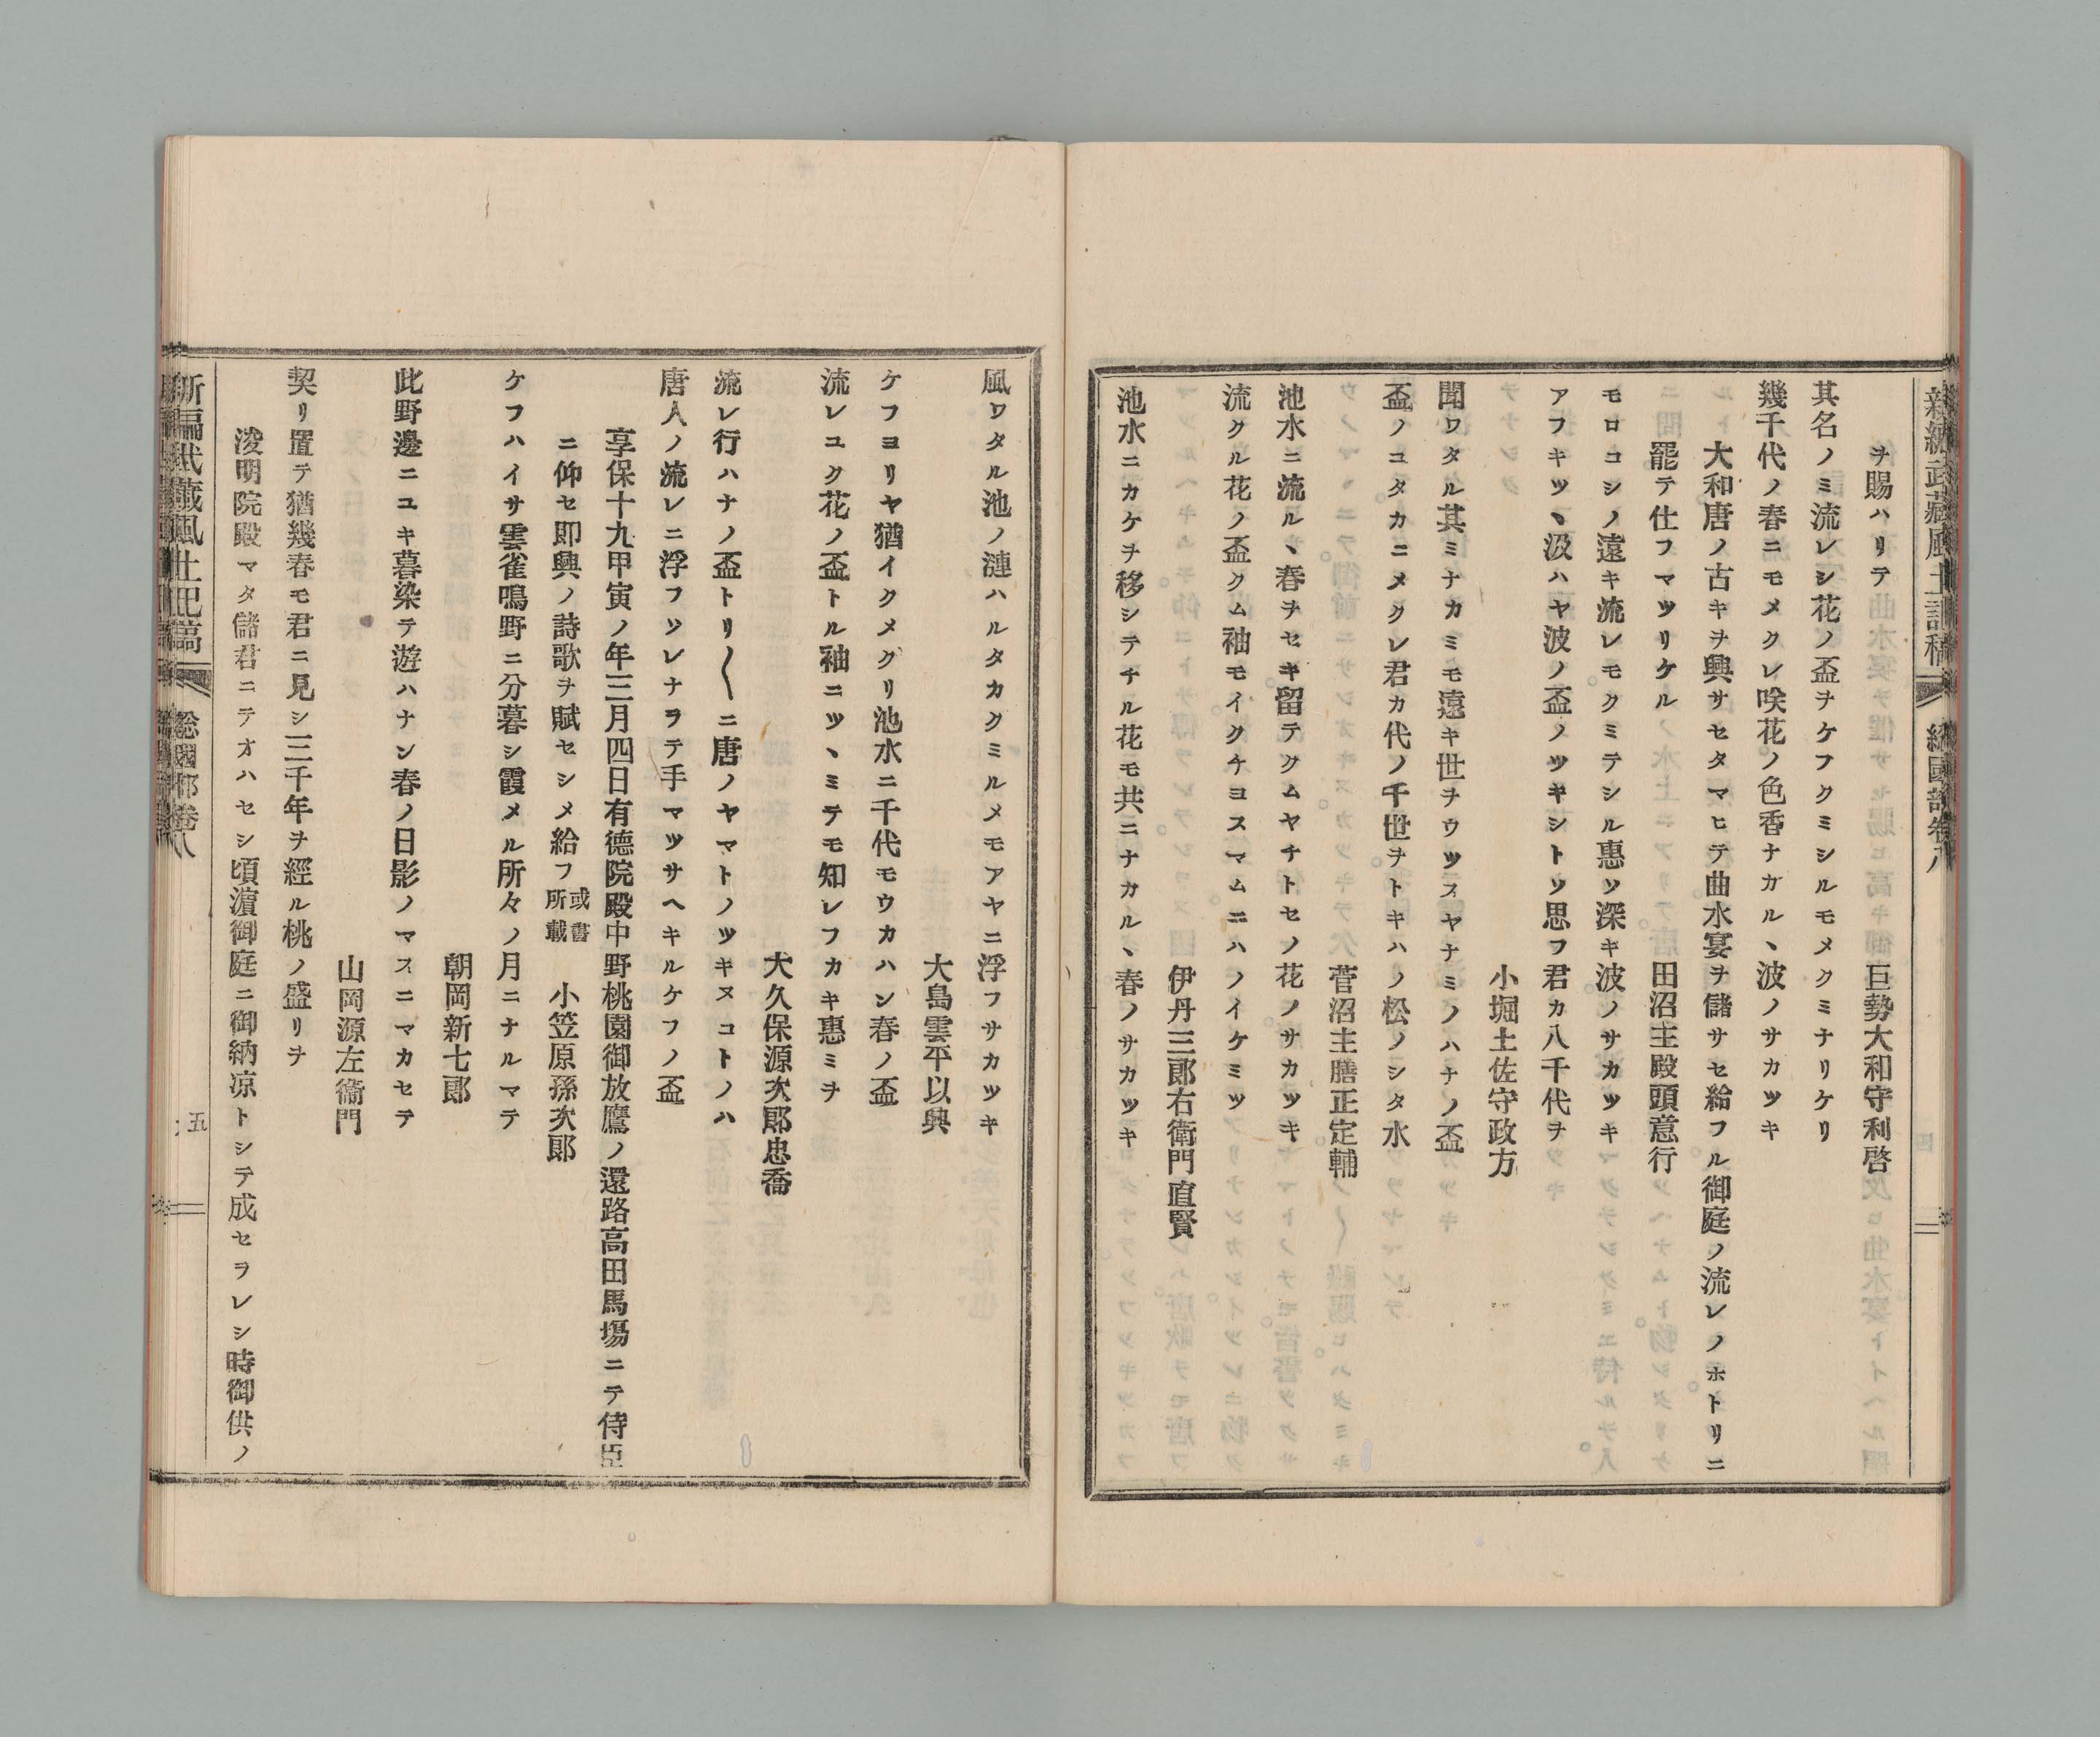 新編武蔵風土記稿 總國部卷八
ヲ賜ハリテ 巨勢大和守利啓
其名ノミ流レシ花ノ盃ヲケフクミシルモメクミナリケリ
幾千代ノ春ニモメクレ咲花ノ色香ナガル丶波ノサカツキ
大和唐ノ古キヲ興サセタマヒテ曲水宴ヲ儲サセ給フル御庭ノ流レノホトリニ
罷テ仕フマツリケル 田沼主殿頭意行
モロコシノ遠キ流レモクミテシル惠ソ深キ波ノサカツキ
アフキツ丶汲ハヤ波ノ盃ノツキシトソ思フ君カ八千代ヲ
小堀土佐守政方
聞ワタル其ミナカミモ遠キ世ヲウツスヤナミノハナノ盃
盃ノユタカニメクレ君カ代ノ千世ヲトキハノ松ノシタ水
菅沼主膳正定輔
池水ニ流ル丶春ヲセキ留テクムヤチトセノ花ノサカツキ
流クル花ノ盃クム袖モイクチヨスマムニハノイケミツ
伊丹三郎右衛門直賢
池水ニカケヲ移シテチル花モ共ニナカル丶春ノサカツキ
風ワタル池ノ漣ハルタカクミルメモアヤニ浮フサカツキ
大島雲平以興
ケフヨリヤ猶イクメクリ池水ニ千代モウカハン春ノ盃
流レユク花ノ盃トル袖ニツ丶ミテモ知レフカキ惠ミヲ
大久保源次郎忠喬
流レ行ハナノ盃トリ〱ニ唐ノヤマトノツキヌコトノハ
唐人ノ流レニ浮フソレナラテ手マツサヘキルケフノ盃
享保十九甲寅ノ年三月四日有德院殿中野桃園御放鷹ノ還路高田馬場ニテ侍臣
ニ仰セ即興ノ詩歌ヲ賦セシメ給フ 或書所載 小笠原孫次郎
ケフハイサ雲雀鳴野ニ分暮シ霞メル所々ノ月ニナルマテ
朝岡新七郎
此野邊ニユキ暮染テ遊ハナン春ノ日影ノマスニマカセテ
山岡源左衞門
契リ置テ猶幾春モ君ニ見シ三千年ヲ經ル桃ノ盛リヲ
浚明院殿マタ儲君ニテオハセシ頃濱御庭ニ御納凉トシテ成セラレシ時御供ノ
新編武藏風土記稿 總國部卷八 五